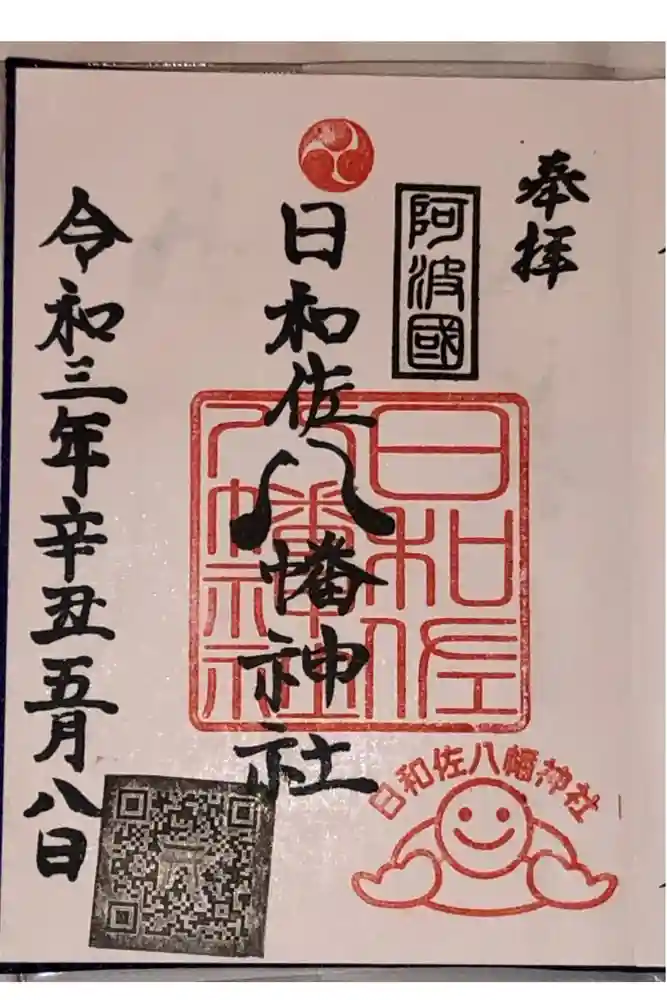 奉拝
阿波國
日和佐八幡神社
日和佐
八幡
神社
令和三年辛丑五月八日
日和佐八幡神社